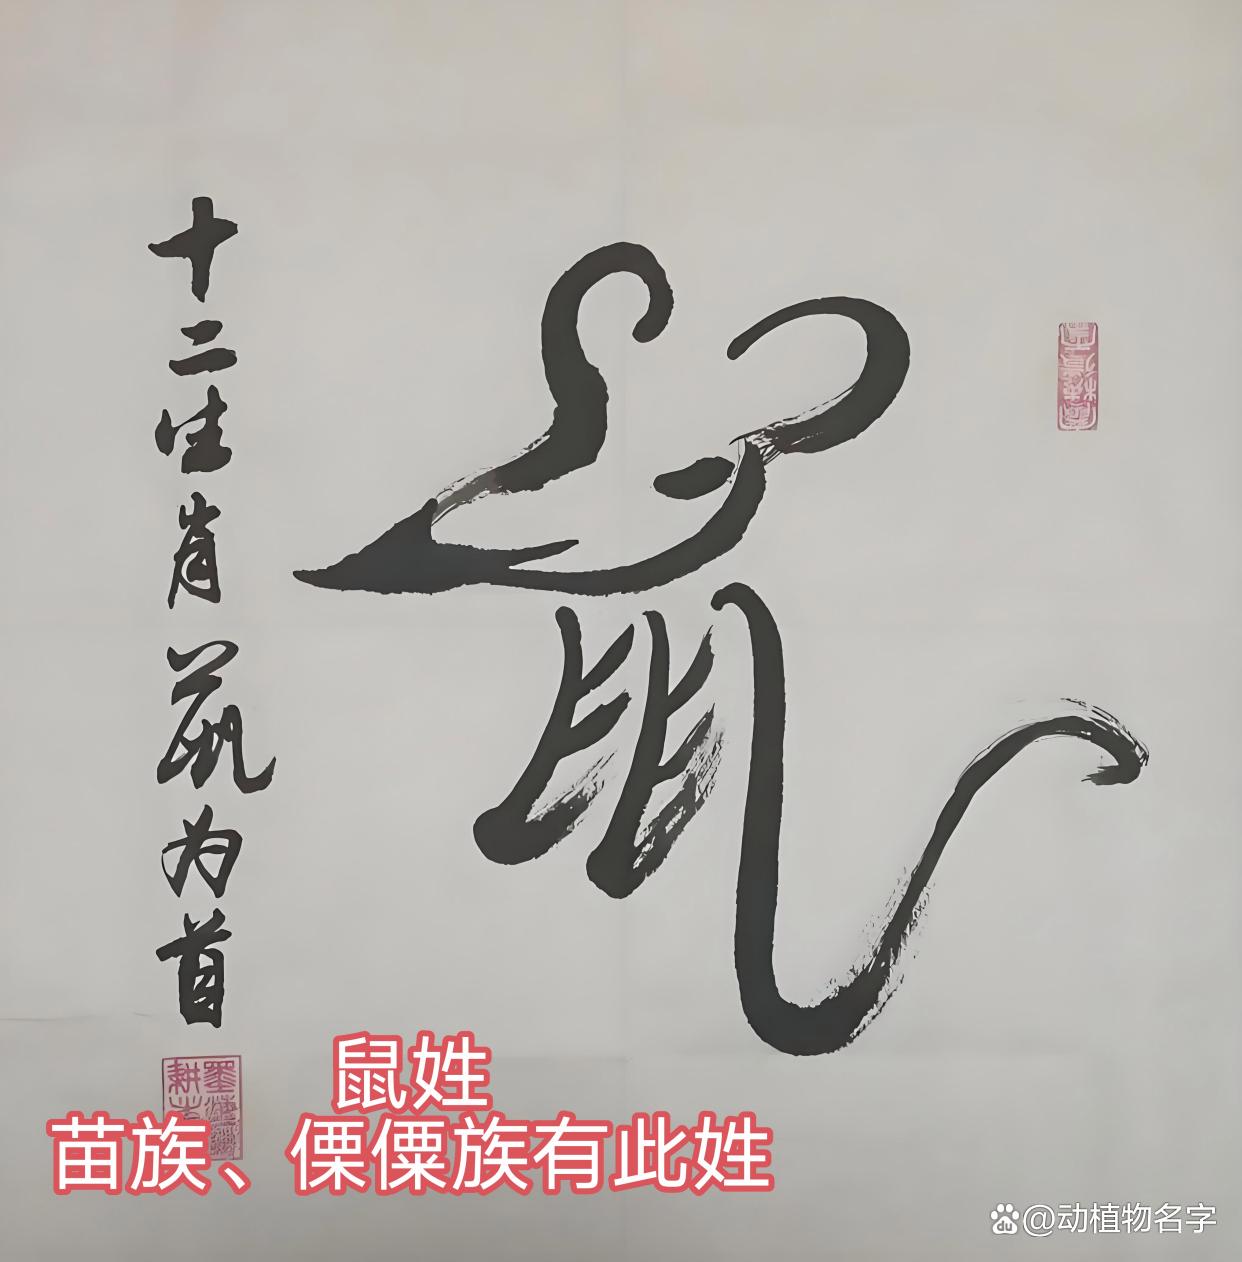 鼠
十二生肖鼠为首
鼠姓
苗族、傈僳族有此姓
du @动植物名字